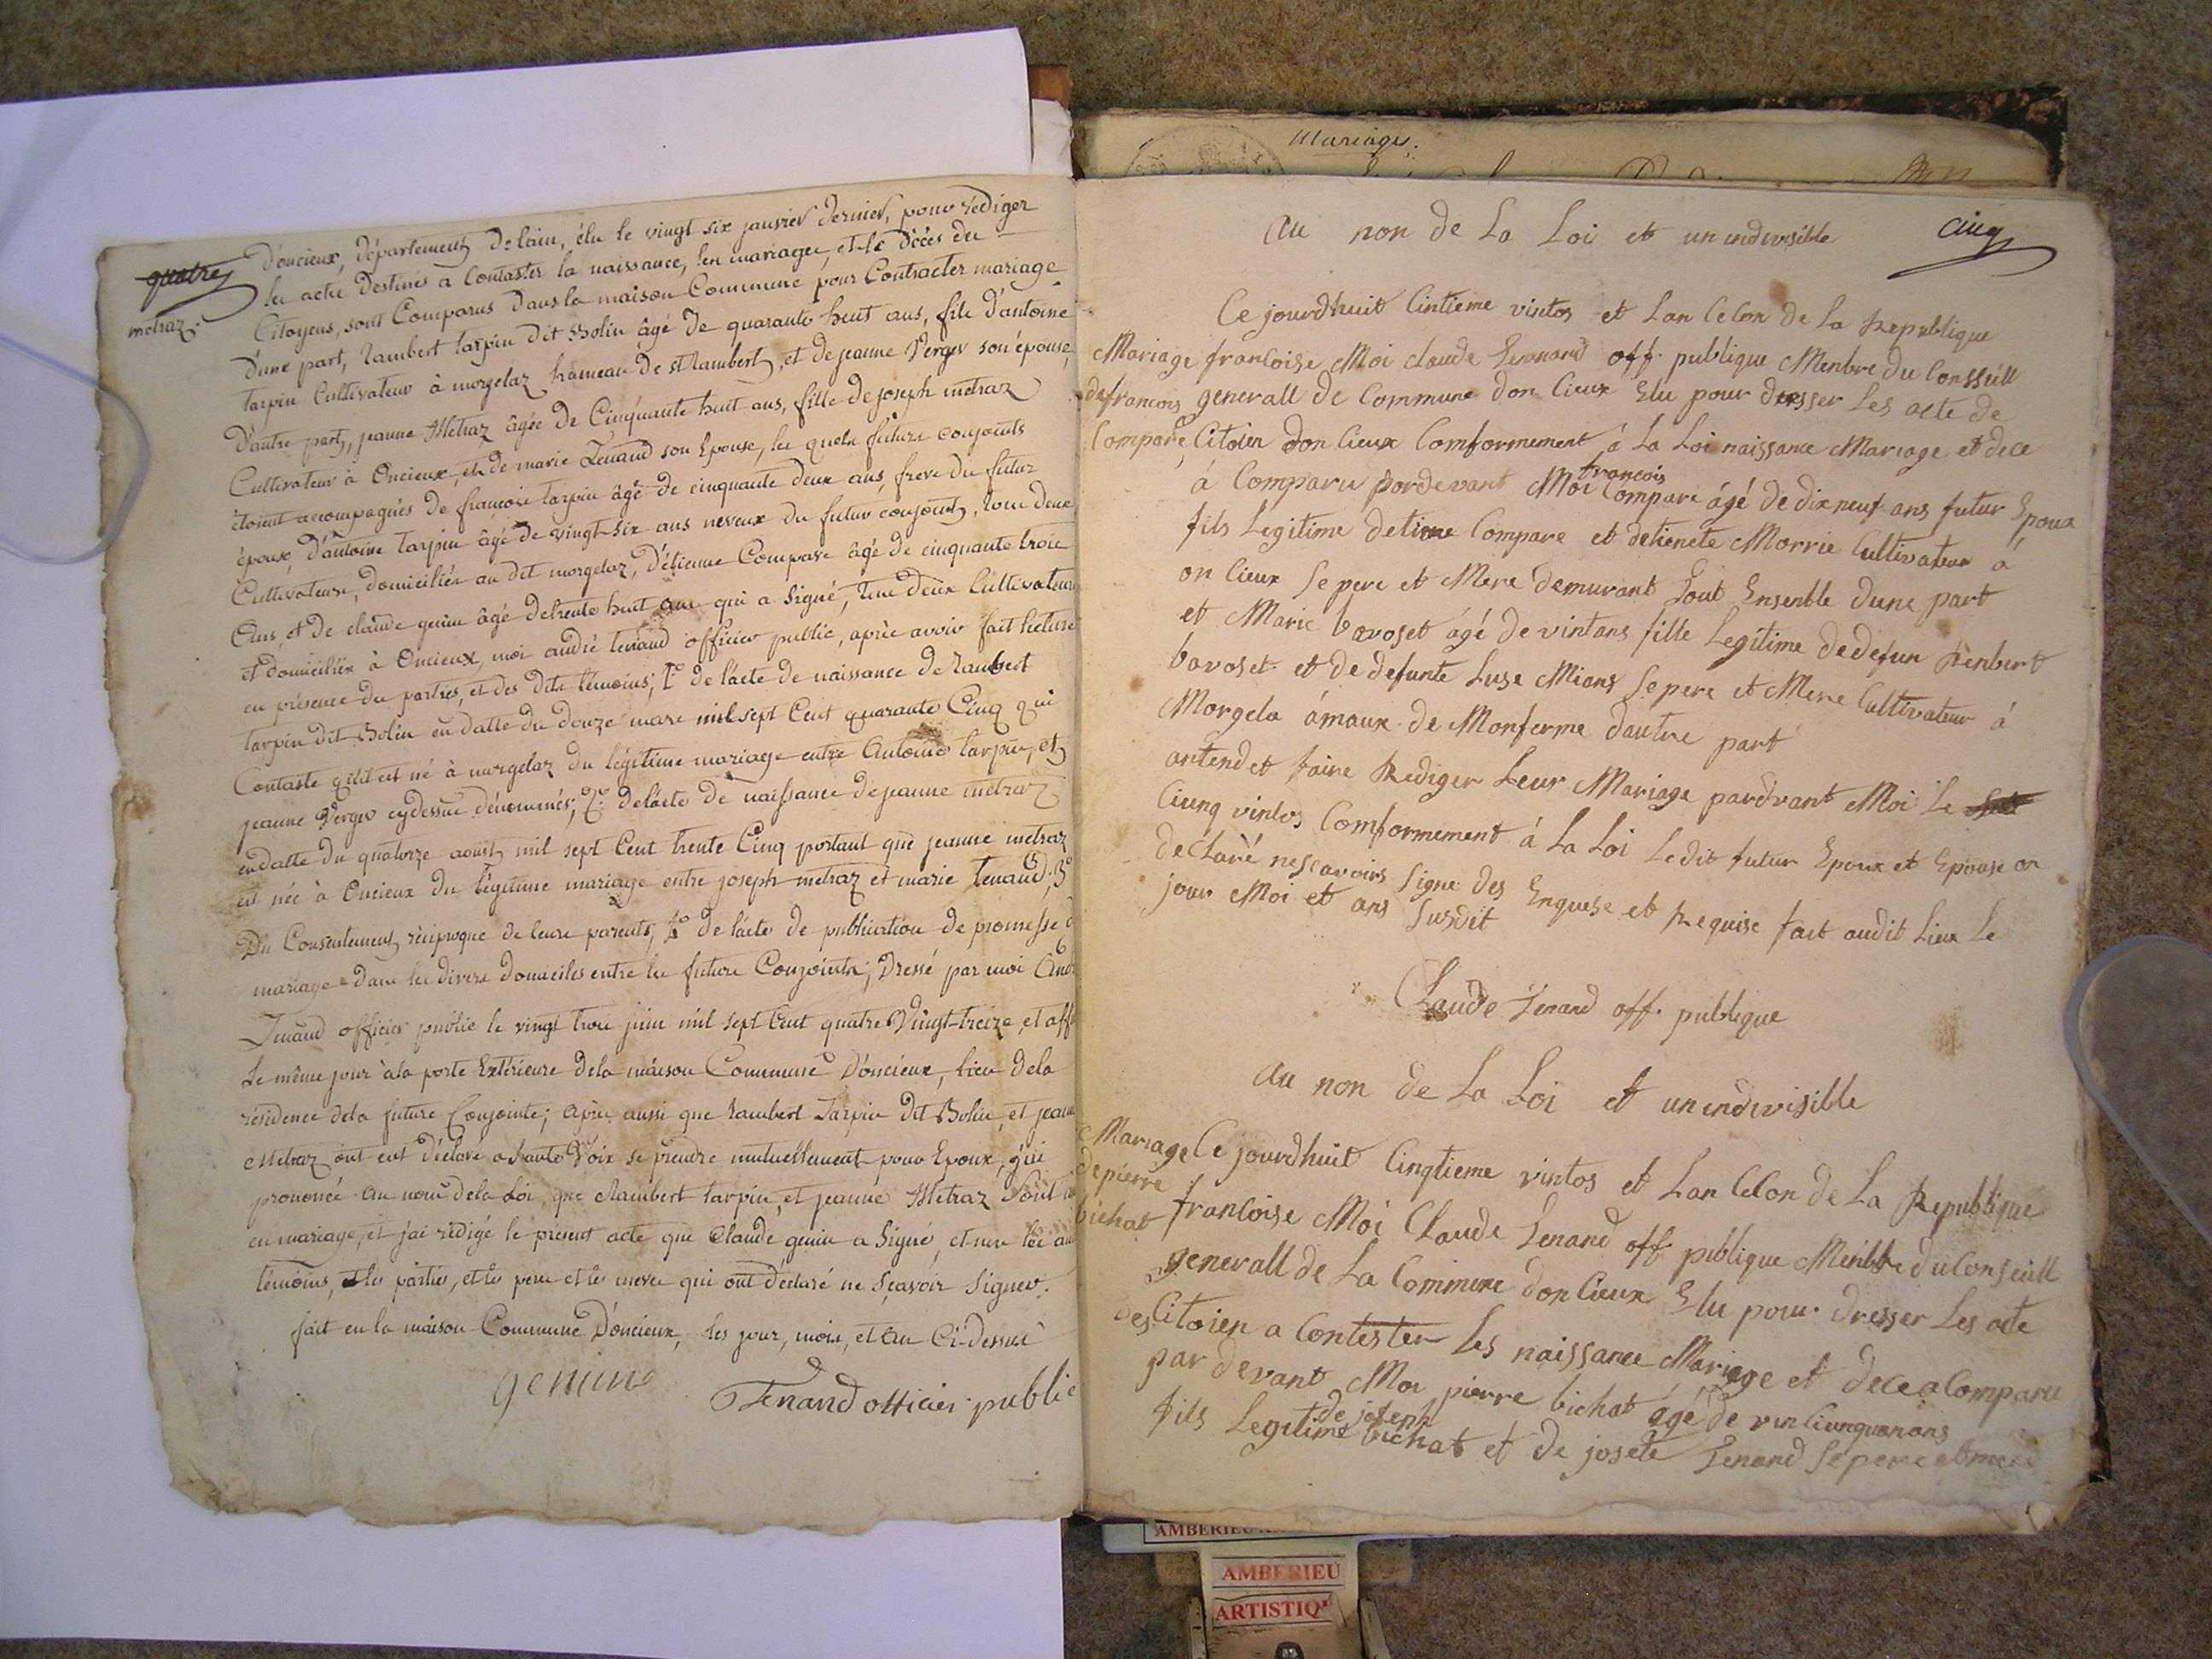 quatre
metraz.
d'oncieux, département de lain, élu le vingt six janvier dernier, pour rédiger
les actes destinés à Contaster la naissance, les mariages, et le décès des
Citoyens, sont Comparus dans la maison Commune pour Contracter mariage
d'une part, Rambert tarpin dit Bolin âgé de quarante huit ans, fils d'antoine
tarpin Cultivateur à morgelaz hameau de st Rambert, et de jeanne Verger son épouse,
d'autre part, jeanne Metraz âgée de Cinquante huit ans, fille de joseph metraz
Cultivateur à Oncieux, et de marie Tenand son Epouse, les quels futurs conjoints
étoient accompagnés de francois tarpin âgé de cinquante deux ans, frere du futur
époux, d'antoine tarpin âgé de vingt six ans neveux du futur conjoint, tous deux
Cultivateurs, domiciliés au dit morgelaz, d'étienne Compare âgé de cinquante trois
ans, et de claude genin âgé de trente huit ans qui a signé, tous deux Cultivateurs
et domiciliés à Oncieux, moi andré tenand officier public, après avoir fait lecture
en présence des parties, et des dits témoins; 1º de l'acte de naissance de Rambert
tarpin dit Bolin en datte du douze mars mil sept Cent quarante Cinq qui
Contaste qu'il est né à morgelaz du légitime mariage entre Antoine tarpin, et
jeanne Verger cydessus dénommés; 2º de l'acte de naissance de jeanne metraz
en datte du quatorze aoust mil sept Cent trente Cinq portant que jeanne metraz
est née à Oncieux du légitime mariage entre joseph metraz et marie tenand; 3º
Du Consentement réciproque de leurs parents; 4º de l'acte de publication de promesse d
mariage dans les divers domiciles entre les futurs Conjoints; dressé par moi And
Tenand officier public le vingt trois juin mil sept Cent quatre Vingt-treize, et aff
le même jour à la porte Extérieure de la maison Commune d'oncieux, lieu de la
résidence de la future Conjointe; après aussi que Rambert Tarpin dit Bolin, et jeanne
Metraz ont eut déclaré a haute Voix se prendre mutuellement pour Epoux, j'ai
prononcé au nom de la Loi, que Rambert tarpin, et jeanne Metraz Sont
en mariage, et j'ai rédigé le présent acte que Claude genin a Signé, et non les au
témoins, et les parties, et les peres et les meres qui ont déclaré ne sçavoir signer.
fait en la maison Commune d'oncieux, les jour, mois, et an Ci-dessus
genin
Tenand officier public
Mariages.
Cinq
Au non de La Loi et un indivisible
Ce jourdhuit Cintieme vintos et Lan Celon de La Republique
Mariage francoise Moi claude Tenand off. publique Menbre du Conssiull
de francois generall de Commune don Cieux Elu pour dresser Les acte de
Compare Citoien don Cieux Comformement à La Loi naissance Mariage et dece
à Comparu pordevant Moi francois Compare ágé de dix neuf ans futur Epoux
fils Legitime detiene Compare et detienete Morrie Cultivateur á
on Cieux Se pere et Mere demurant Tout Ensenble dune part
et Marie bavoset ágé de vintans fille Legitime de defun Renbert
bavoset et de defunte Luse Mians Sepere et Mere Cultivateur á
Morgela ámaux de Monferme dautre part
antendet faire Rediger Leur Mariage pardvant Moi Le
Ciunq vintos Comformement á La Loi Ledit futur Epoux et Epouse on
declaré nesçavoirs Signe des Enquese et Requise fait audit Lieux Le
jour Moi et ans Susdit
Claude Tenand off. publique
Au non de La Loi et un indivisible
Mariage Ce jourdhuit Cinqtieme vintos et Lan Celon de La Republique
de pierre
bichat francoise Moi Claude Tenand off publique Menbre du Conseiull
generall de La Commune don Cieux Elu pour dresser Les acte
des Citoien a Contester Les naissance Mariage et dece a Comparu
par devant Moi pierre bichat ágé de vin Ciunquanans
fils Legitime de joseph bichat et de josete Tenand Sepere et mere
AMBERIEU
AMBERIEU
ARTISTIQ